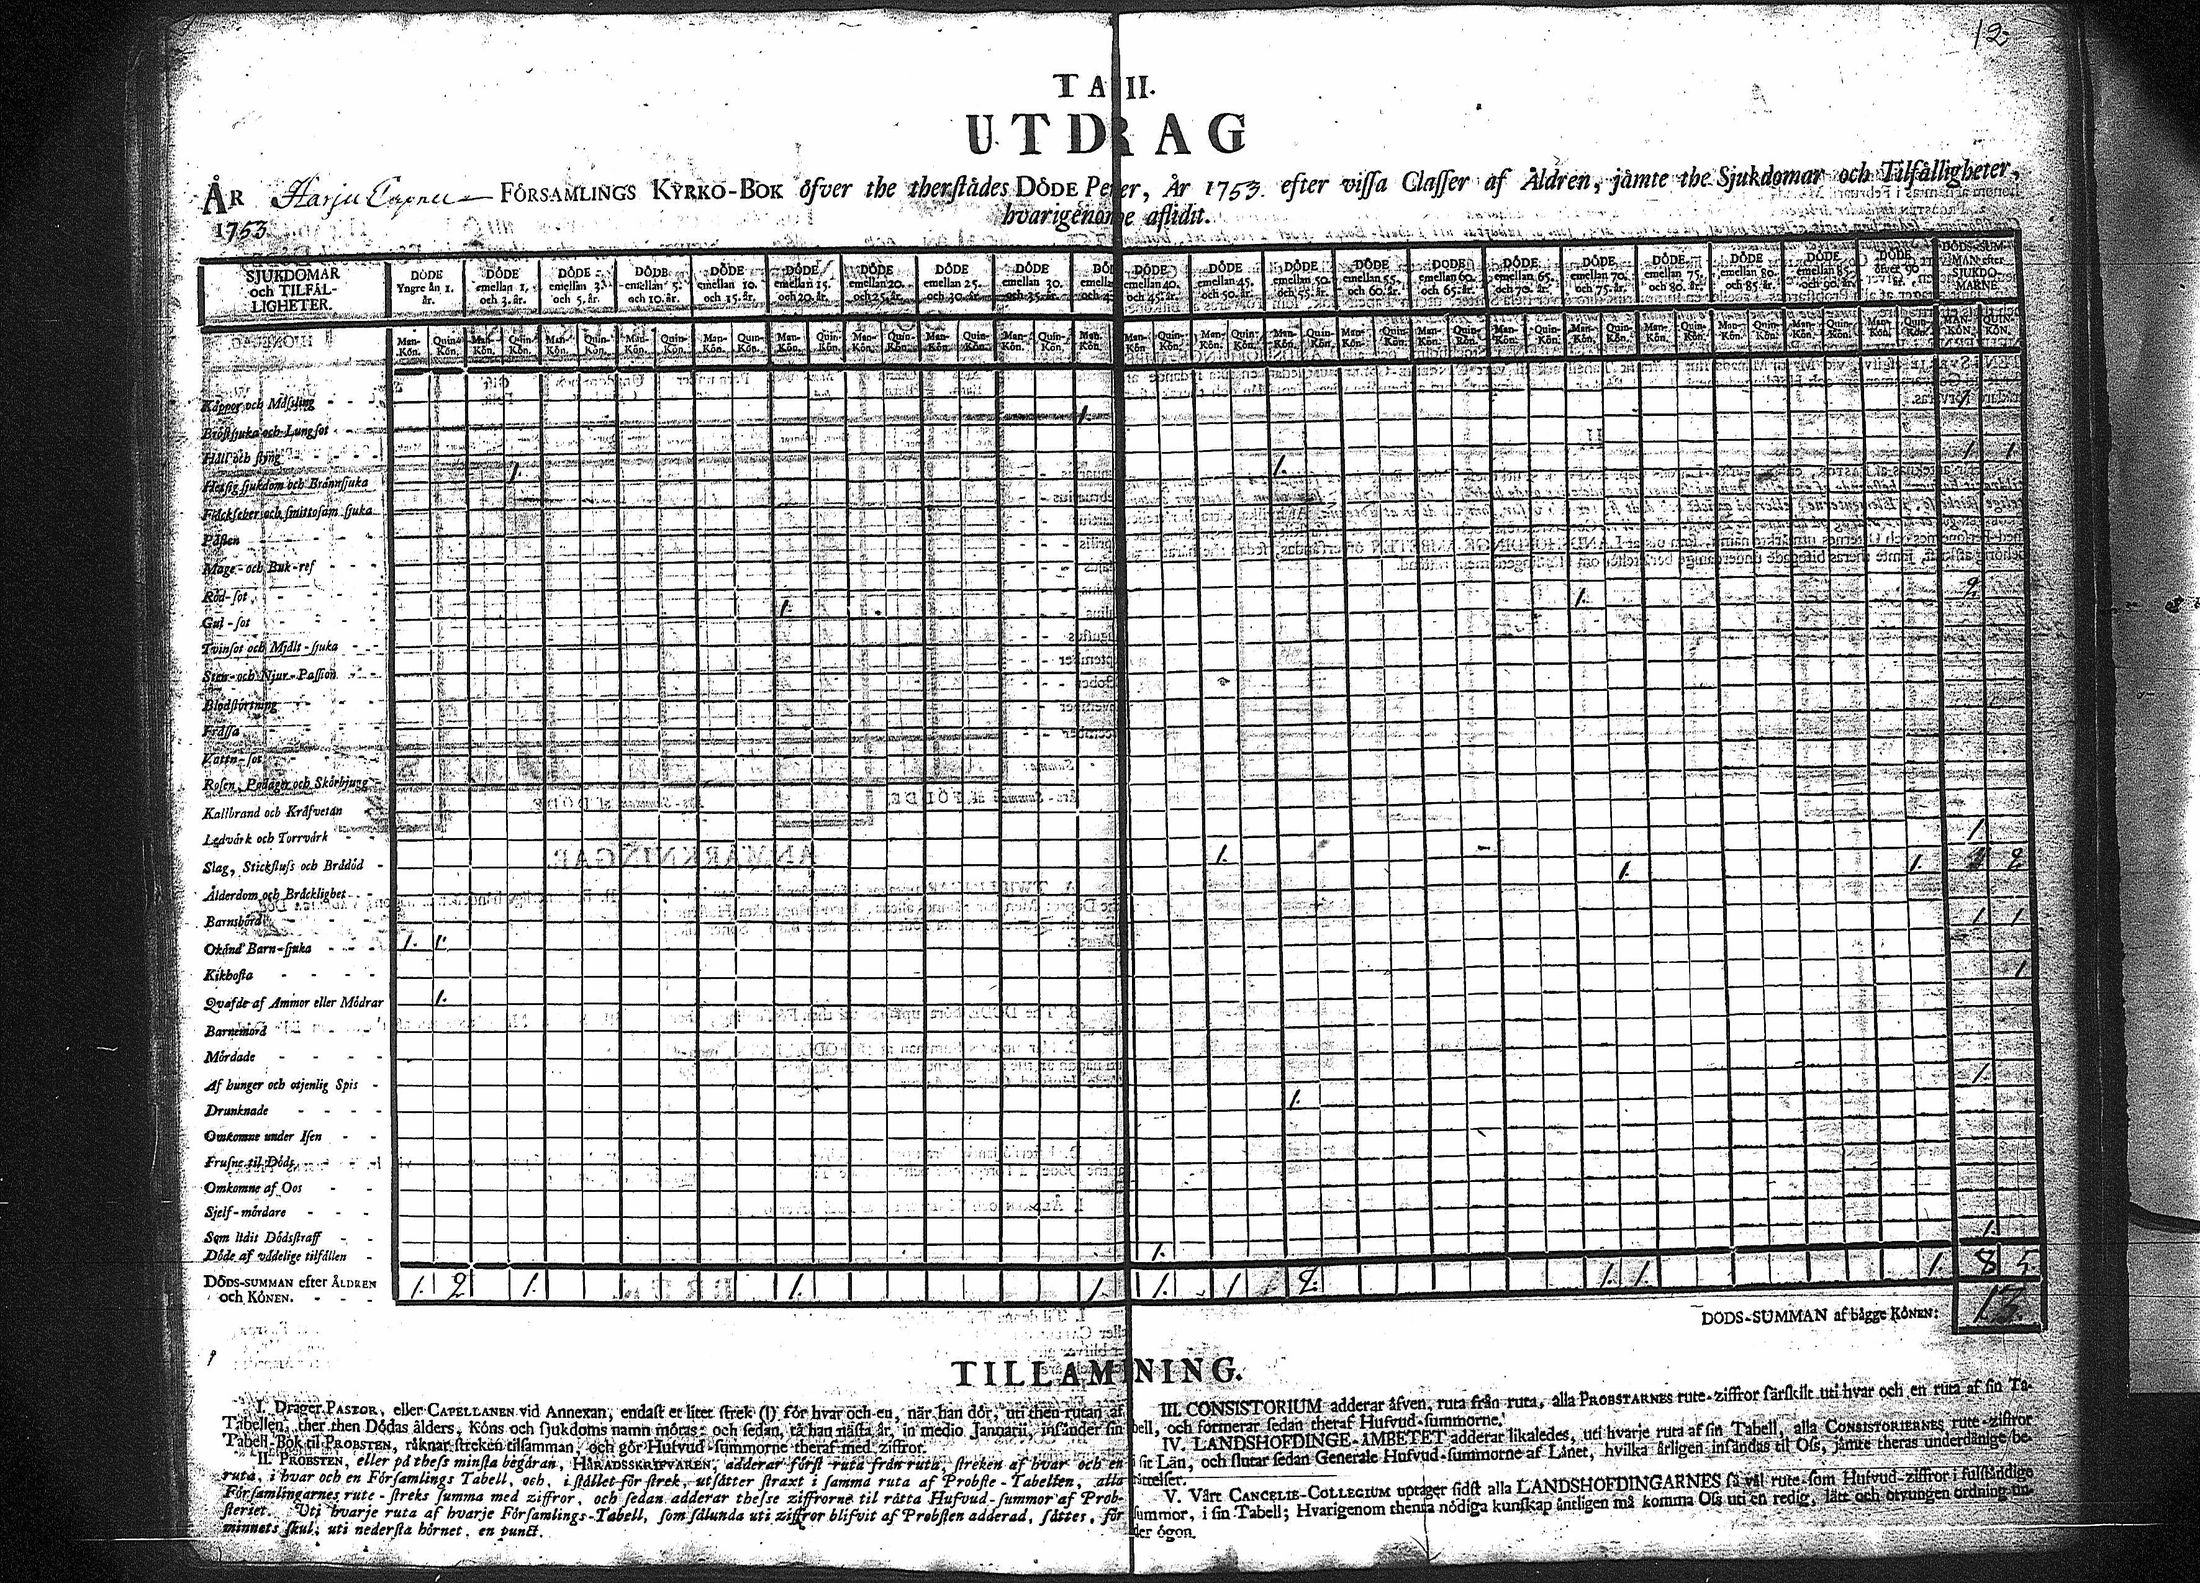 12.
TA II.
UTDRAG
ÅR Harju Capell — FÖRSAMLINGS KYRKO-BOK öfver the therstädes DÖDE Per er, År 1753. efter vissa Classer af Åldren, jämte the Sjukdomar och Tilfälligheter,
1753 hvarigenome aflidit.
SJUKDOMAR och TILFÄL-LIGHETER.
DÖDE Yngre än 1. år.
DÖDE emellan 1. och 3. år.
DÖDE emellan 3. och 5. år.
DÖDE emellan 5. och 10. år.
DÖDE emellan 10. och 15. år.
DÖDE emellan 15. och 20. år.
DÖDE emellan 20. och 25. år.
DÖDE emellan 25. och 30. år.
DÖDE emellan 30. och 35. år.
DÖDE emellan 40. och 45. år.
DÖDE emellan 45. och 50. år.
DÖDE emellan 50. och 55. år.
DÖDE emellan 55. och 60. år.
DÖDE emellan 60. och 65. år.
DÖDE emellan 65. och 70. år.
DÖDE emellan 70. och 75. år.
DÖDE emellan 75. och 80. år.
DÖDE emellan 80. och 85. år.
DÖDE emellan 85. och 90. år.
DÖDE öfver 90 år.
DÖDS-SUMMAN efter SJUKDOMARNE.
Man-Kön. Quin-Kön.
Kåppor och Mässling - - - 1. 1
Bröstsjuka och Lungsot - - -
Håll och styng - - - 1 1
Hetsig sjukdom och Brännsjuka 1. 1.
Fläckfeber och smittosam sjuka
Pästen - - -
Mage- och Buk-ref - - -
Röd-sot - - - 1. 1. 2.
Gul-sot - - -
Tvinsot och Mjält-sjuka - -
Sten- och Njur-Passion - -
Blodstörtning - - -
Frässa - - -
Vattn-sot - - -
Rosen, Podager och Skörbjugg -
Kallbrand och Kräfvetan
Ledvärk och Torrvärk - - 1.
Slag, Stickfluss och Brådöd - 1. 1. 1. 2
Ålderdom och Bräcklighet - -
Barnsbörd - - - 1 1
Okänd Barn-sjuka - - - 1. 1.
Kikhosta - - - - 1
Qväfde af Ammor eller Mödrar 1.
Barnemord - - -
Mördade - - - -
Af hunger och otjenlig Spis - 1.
Drunknade - - - - 1.
Omkomne under Isen - -
Frusne til Döds - - -
Omkomne af Oos - -
Sjelf-mördare - - -
Som lidit Dödsstraff - - 1.
Döde af vådelige tilfällen - 1. 8 5.
DÖDS-SUMMAN efter ÅLDREN och KÖNEN. - - - 1. 2 1. 1. 1. 1. 1 2. 1. 1. 1.
DÖDS-SUMMAN af bägge KÖNEN: 13.
TILLÄMNING.
I. Drager PASTOR, eller CAPELLANEN vid Annexan, endast et litet strek (|) för hvar och en, när han dör, uti then rutan af
Tabellen, ther then Dödas ålders, Köns och sjukdoms namn mötas; och sedan, tå han nästa år, in medio Januarii, insänder sin
Tabell-Bok til PROBSTEN, räknar streken tilsamman, och gör Hufvud-summorne theraf med ziffror.
II. PROBSTEN, eller på thess minsta begäran, HÄRADSSKRIFVAREN, adderar först ruta från ruta, streken af hvar och en
ruta, i hvar och en Församlings Tabell, och, i stället för strek, utsätter straxt i samma ruta af Probste-Tabellen, alla
Församlingarnes rute-streks summa med ziffror, och sedan adderar thesse ziffrorne til rätta Hufvud-summor af Prob-
steriet. Uti hvarje ruta af hvarje Församlings-Tabell, som sålunda uti ziffror blifvit af Probsten adderad, sättes, för
minnets skul, uti nedersta hörnet, en punct.
III. CONSISTORIUM adderar äfven, ruta från ruta, alla PROBSTARNES rute-ziffror särskilt uti hvar och en ruta af sin Ta-
bell, och formerar sedan theraf Hufvud-summorne.
IV. LANDSHÖFDINGE-ÄMBETET adderar likaledes, uti hvarje ruta af sin Tabell, alla CONSISTORIERNES rute-ziffror
i sit Län, och slutar sedan Generale Hufvud-summorne af Länet, hvilka årligen insändas til Oss, jämte theras underdånige be-
rättelser.
V. Vårt CANCELIE-COLLEGIUM uptager sidst alla LANDSHÖFDINGARNES så väl rute- som Hufvud-ziffror i fulständige
summor, i sin Tabell; Hvarigenom thenna nödiga kunskap äntligen må komma Oss uti en redig, lätt och otvungen ordning un-
der ögon.